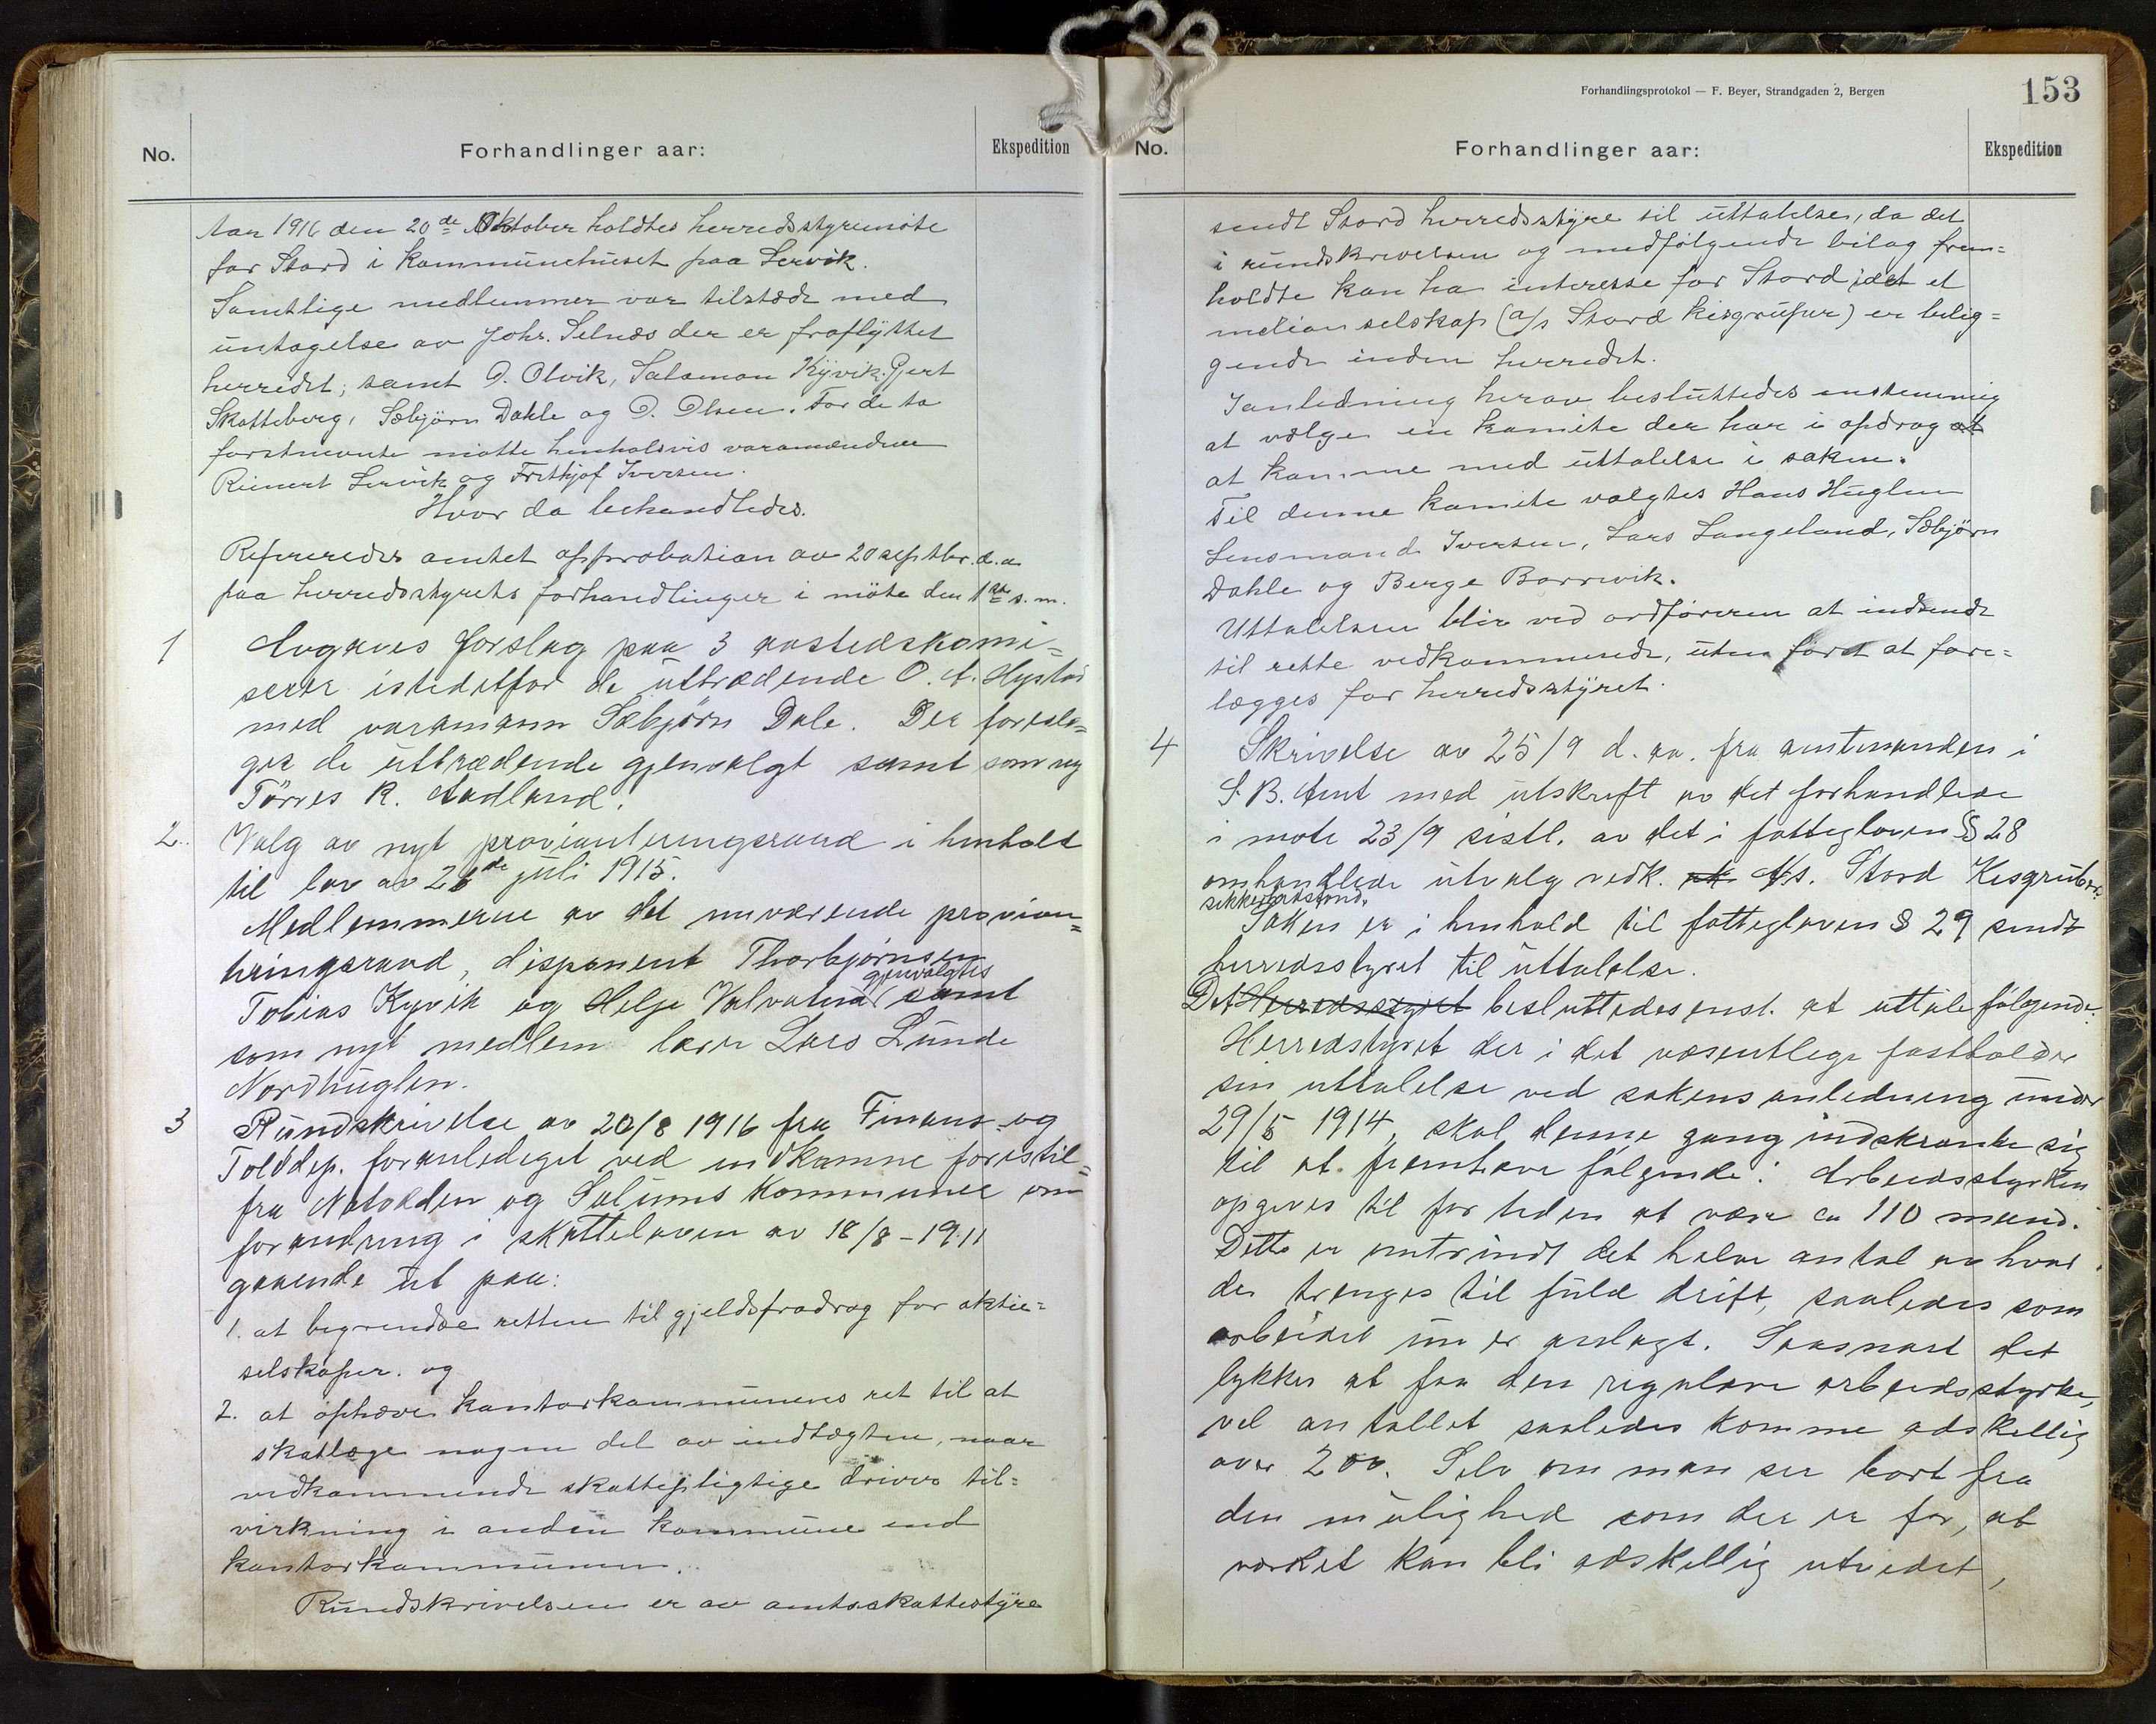 No.
Forhandlinger aar:
Ekspedition
Aar 1916 den 20de Oktober holdtes herredsstyremöte
for Stord i Kommunehuset paa Lervik.
Samtlige medlemmer var tilstæde med
untagelse av Johs. Selnæs der er fraflyttet
herredet, samt O. Olvik, Salamon Kyvik, Gjert
Skatteberg, Sæbjörn Dahle og O. Olsen. For de to
förstnevnte mötte henholsvis varamændene
Reinert Lervik og Frithjof Iversen.
Hvor da behandledes.
Refereredes amtet approbation av 20 septbr. d.a
paa herredsstyrets forhandlinger i möte den 1ste s.m.
1
Avgaves forslag paa 3 aastedskomi=
særer istedetfor de uttrædende O. A. Hystad
med varamann Sæbjörn Dale. Der foresla=
ges de uttrædende gjenvalgt samt som ny
Törres K. Aadland.
2.
Valg av nyt provianteringsraad i henhold
til lov av 26de juli 1915.
Medlemmerne av det nuværende provian=
teringsraad, disponent Thorbjörnsen
gjenvalgtes
Tobias Kyvik og Helge Valvatna samt
som nyt medlem lærer Lars Lunde
Nordhuglen.
3
Rundskrivelse av 20/8 1916 fra Finans- og
Tolddep. foranlediget ved indkomne forestil=
fra Notodden og Solums Kommuner om
forandring i skatteloven av 18/8 - 1911
gaaende ut paa:
1. at begrendse retten til gjeldsfradrag for aktie=
selskaper. og
2. at ophæve kontorkommunenes ret til at
skatlægge nogen del av indtægten, naar
vedkommende skattepligtige driver til=
virkning i anden kommune end
kontorkommunen.
Rundskrivelsen er av amtsskattestyre
Forhandlingsprotokol — F. Beyer, Strandgaden 2, Bergen
153
No.
Forhandlinger aar:
Ekspedition
sendt Stord herredsstyre til uttalelse, da det
i rundskrivelsen og medfölgende bilag frem=
holdte kan ha interesse for Stord idet et
selskap (A/s Stord Kisgruper) er belig=
gende inden herredet.
I anledning herav besluttedes enstemmig
at vælge en komite der har i opdrag at
at komme med uttalelse i saken.
Til denne komite valgtes Hans Huglen
Lensmand Iversen, Lars Langeland, Sæbjörn
Dahle og Berge Borrevik.
Uttalelsen blir ved ordföreren at indsende
til rette vedkommende, uten först at fore=
lægges for herredsstyret.
4
Skrivelse av 25/9 d. aa. fra amtmanden i
S. B. Amt med utskrift av det forhandlede
i möte 23/9 sistl. av det i fattigloven § 28
omhandlede utvalg vedk. A/s. Stord Kisgrubers
sikkerhedsfond.
Saken er i henhold til fattigloven § 29 sendt
herredsstyret til uttalelse.
Det Herredsstyret besluttedes enst. at uttale fölgende:
Herredstyret der i det væsentlige fastholder
sin uttalelse ved sakens anledning under
29/5 1914, skal denne gang indskrænke sig
til at fremhæve fölgende: Arbeidsstyrken
opgives til for tiden at være ca 110 mand.
Dette er omtrindt det halve antal av hvad
der trenges til fuld drift, saaledes som
arbeidet nu er anlagt. Saasnart det
lykkes at faa den regulære arbeidsstyrke,
vil antallet saaledes komme adskillig
over 200. Selv om man ser bort fra
den mulighed som der er for, at
værket kan bli adskillig utvidet,